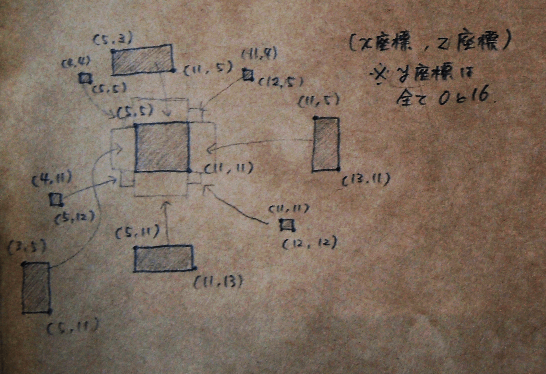 (5,3)
(x座標, z座標)
(4,4)
(11,4)
(11,5)
※ y座標は
(5,5)
(12,5)
全て0と16.
(5,5)
(11,5)
(11,11)
(4,11)
(13,11)
(5,12)
(11,11)
(5,11)
(12,12)
(3,5)
(11,13)
(5,11)